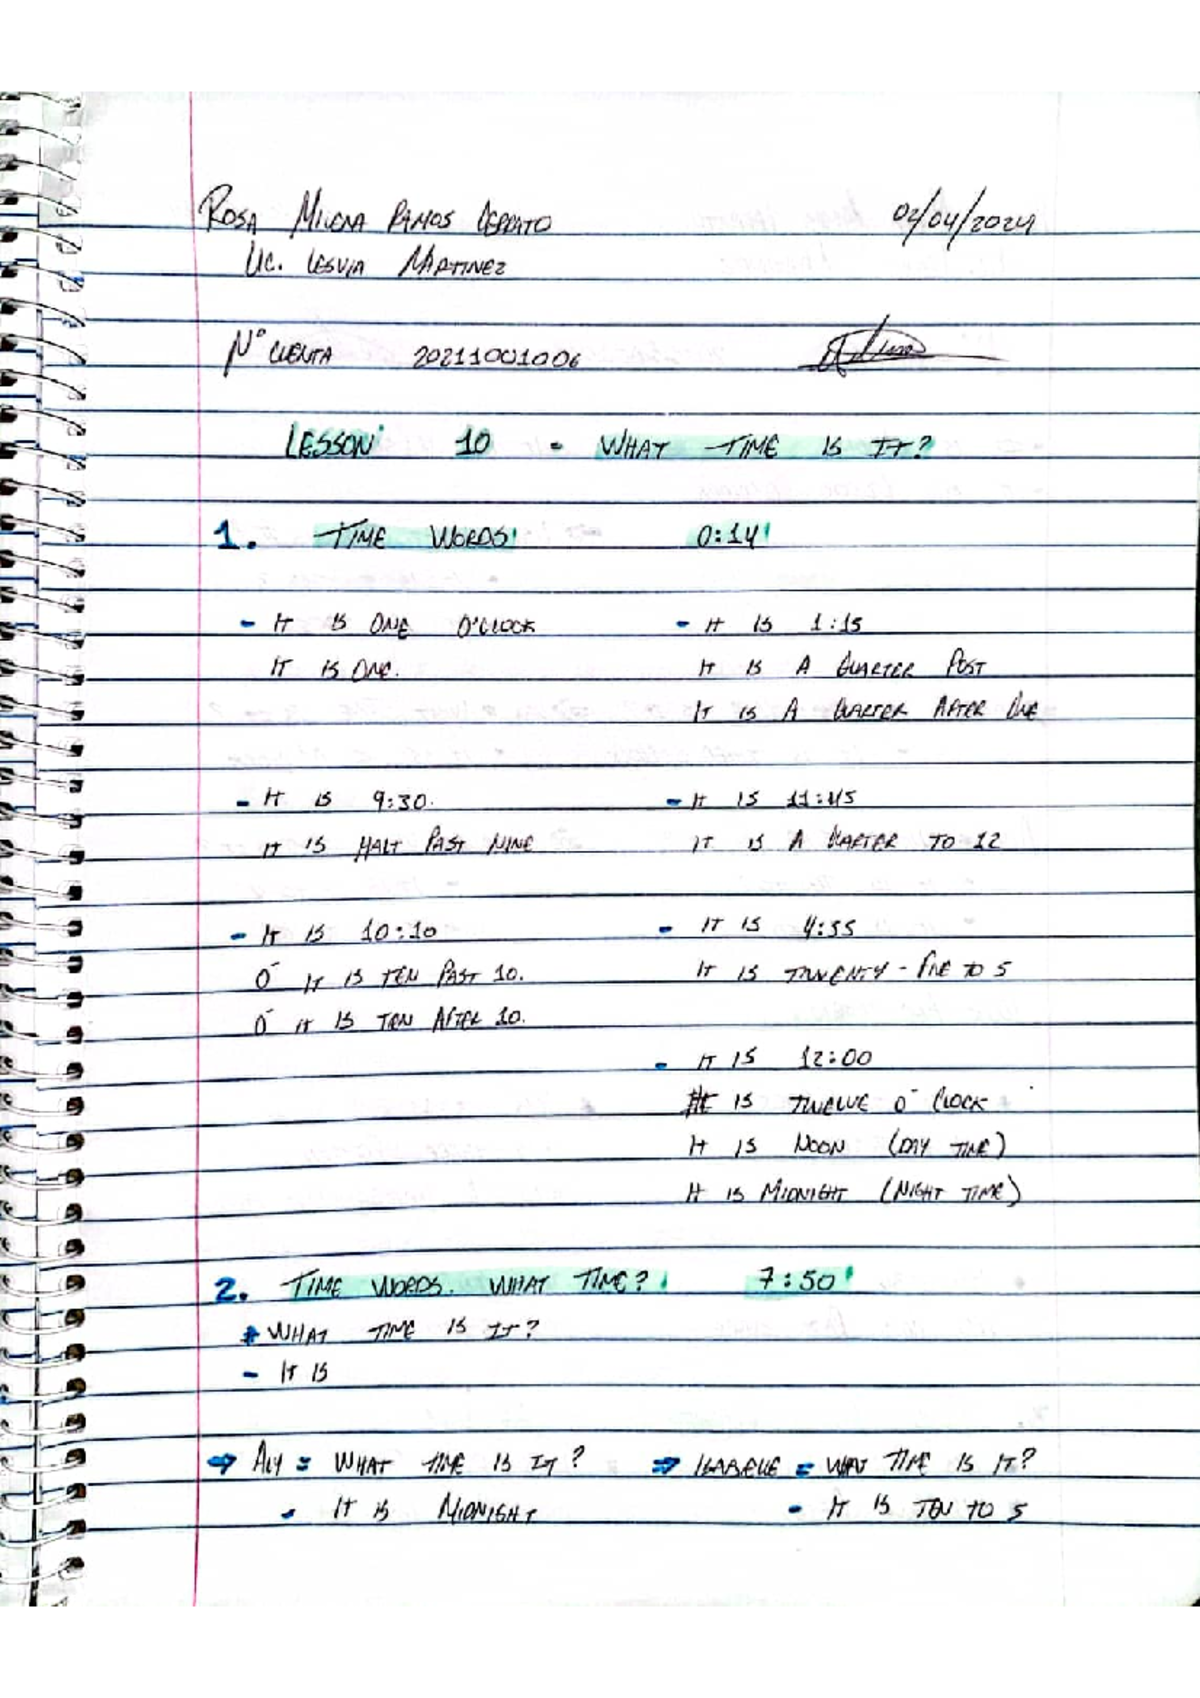 ROSA MILENA RAMOS CERRATO 02/04/2024
LIC. LESVIA MARTINEZ
N° CUENTA 20211001006
LESSON 10 - WHAT TIME IS IT?
1. TIME WORDS! 0:14!
- IT IS ONE O'CLOCK - IT IS 1:15
IT IS ONE. IT IS A QUARTER POST
IT IS A QUARTER AFTER ONE
- IT IS 9:30. - IT IS 11:45
IT IS HALF PAST NINE IT IS A QUARTER TO 12
- IT IS 10:10 - IT IS 4:35
O IT IS TEN PAST 10. IT IS TWENTY-FIVE TO 5
O IT IS TEN AFTER 10.
- IT IS 12:00
IT IS TWELVE O' CLOCK
IT IS NOON (DAY TIME)
IT IS MIDNIGHT (NIGHT TIME)
2. TIME WORDS. WHAT TIME? ! 7:50!
* WHAT TIME IS IT?
- IT IS
⇒ ALY = WHAT TIME IS IT? ⇒ ISABELLE = WHAT TIME IS IT?
- IT IS MIDNIGHT - IT IS TEN TO 5